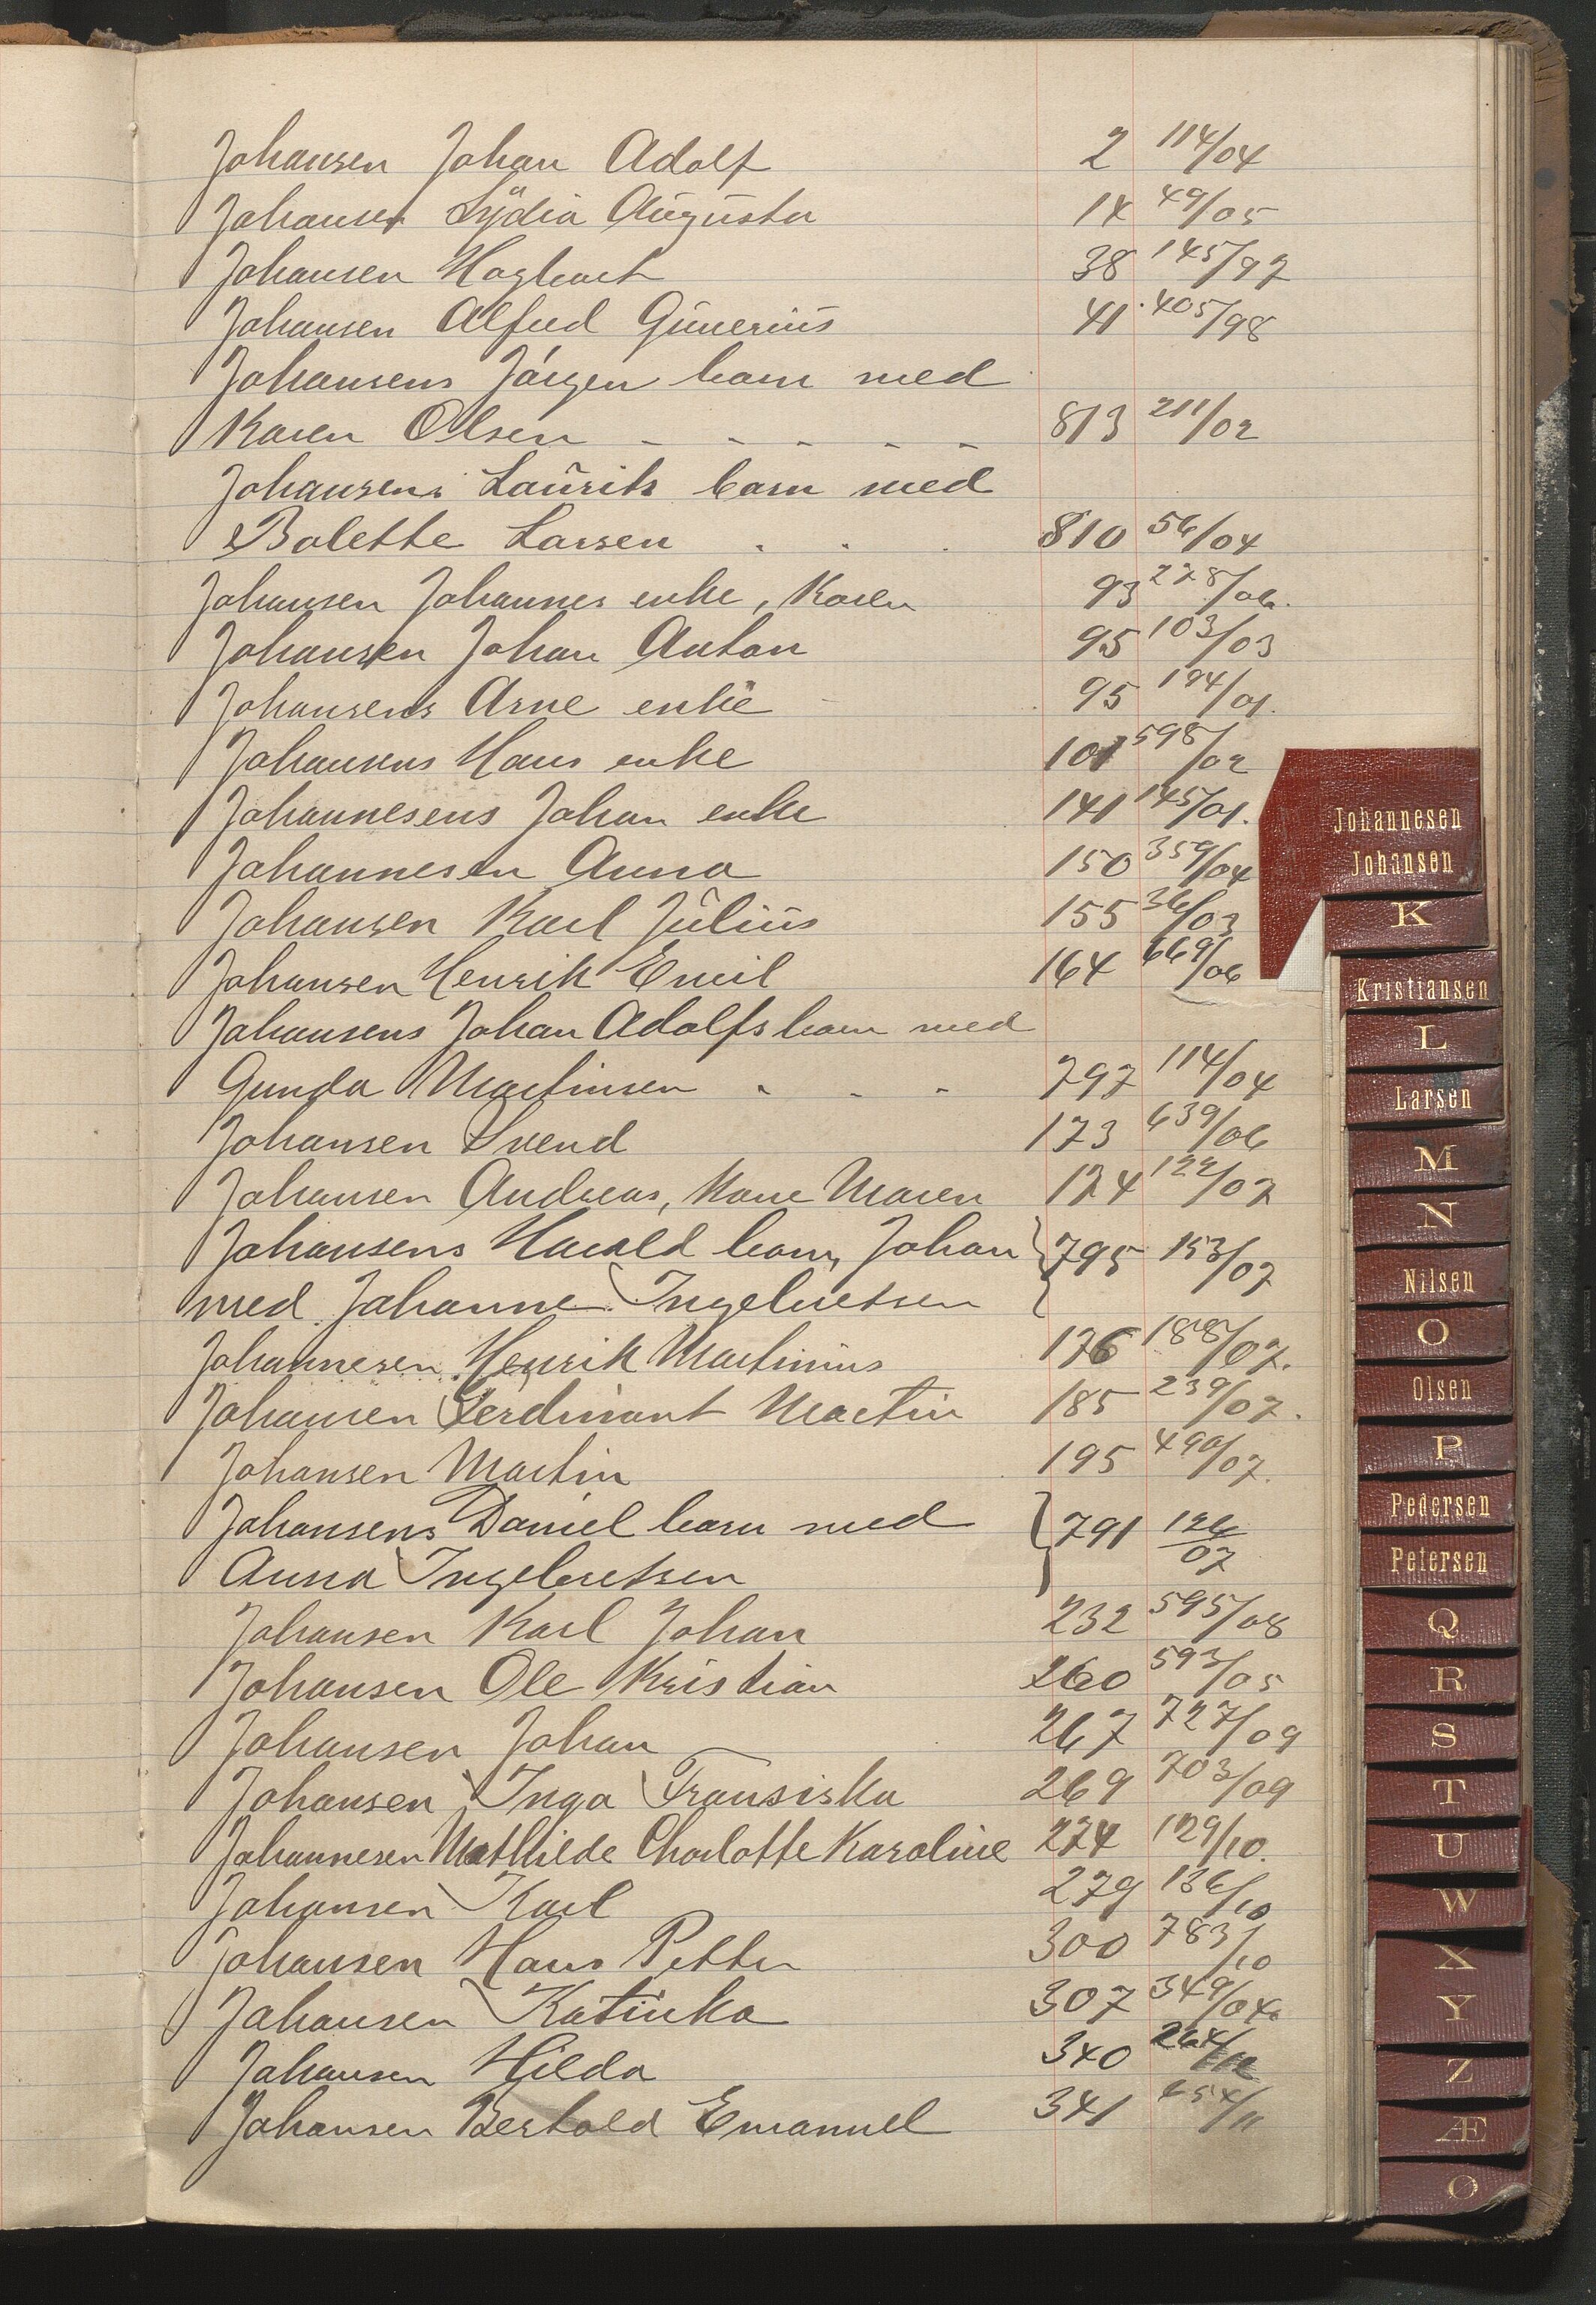 Johansen Johan Adolf 2 114/04
Johansen Lydia Augusta 14 49/05
Johansen Hagbart 38 145/97
Johansen Alfred Gunerius 41 405/98
Johansens Jørgen barn med
Karen Olsen - - - - - 813 211/02
Johansens Laurits barn med
Bolette Larsen . . . 810 56/04
Johansen Johannes enke, Karen 93 228/06.
Johansen Johan Anton 95 103/03
Johansens Arne enke 95 194/01.
Johansens Hans enke 101 598/02
Johannesens Johan enke 141 145/01.
Johannesen Anna 150 359/04
Johansen Karl Julius 155 36/03
Johansen Henrik Emil 164 669/06
Johansens Johan Adolfs barn med
Gunda Martinsen - - - 797 114/04
Johansen Svend 173 639/06
Johansen Andreas, Kone Maren 174 122/07
Johansens Harald barn, Johan } 795 153/07
med Johanne Ingebretsen
Johannesen Henrik Martinius 176 188/07.
Johansen Ferdinant Martin 185 239/07.
Johansen Martin 195 490/07.
Johansens Daniel barn med } 791 126/07
Anna Ingebretsen
Johansen Karl Johan 232 595/08
Johansen Ole Kristian 260 593/05
Johansen Johan 267 727/09
Johansen Inga Fransiska 269 703/09
Johannesen Mathilde Charlotte Karoline 274 129/10.
Johansen Karl 279 136/10
Johansen Hans Petter 300 783/10
Johansen Katinka 307 349/04
Johansen Hilda 340
Johansen Bertold Emanuel 341 454/11
Johannesen
Johansen
K
Kristiansen
L
Larsen
M
N
Nilsen
O
Olsen
P
Pedersen
Petersen
Q
R
S
T
U
W
X
Y
Z
Æ
Ø